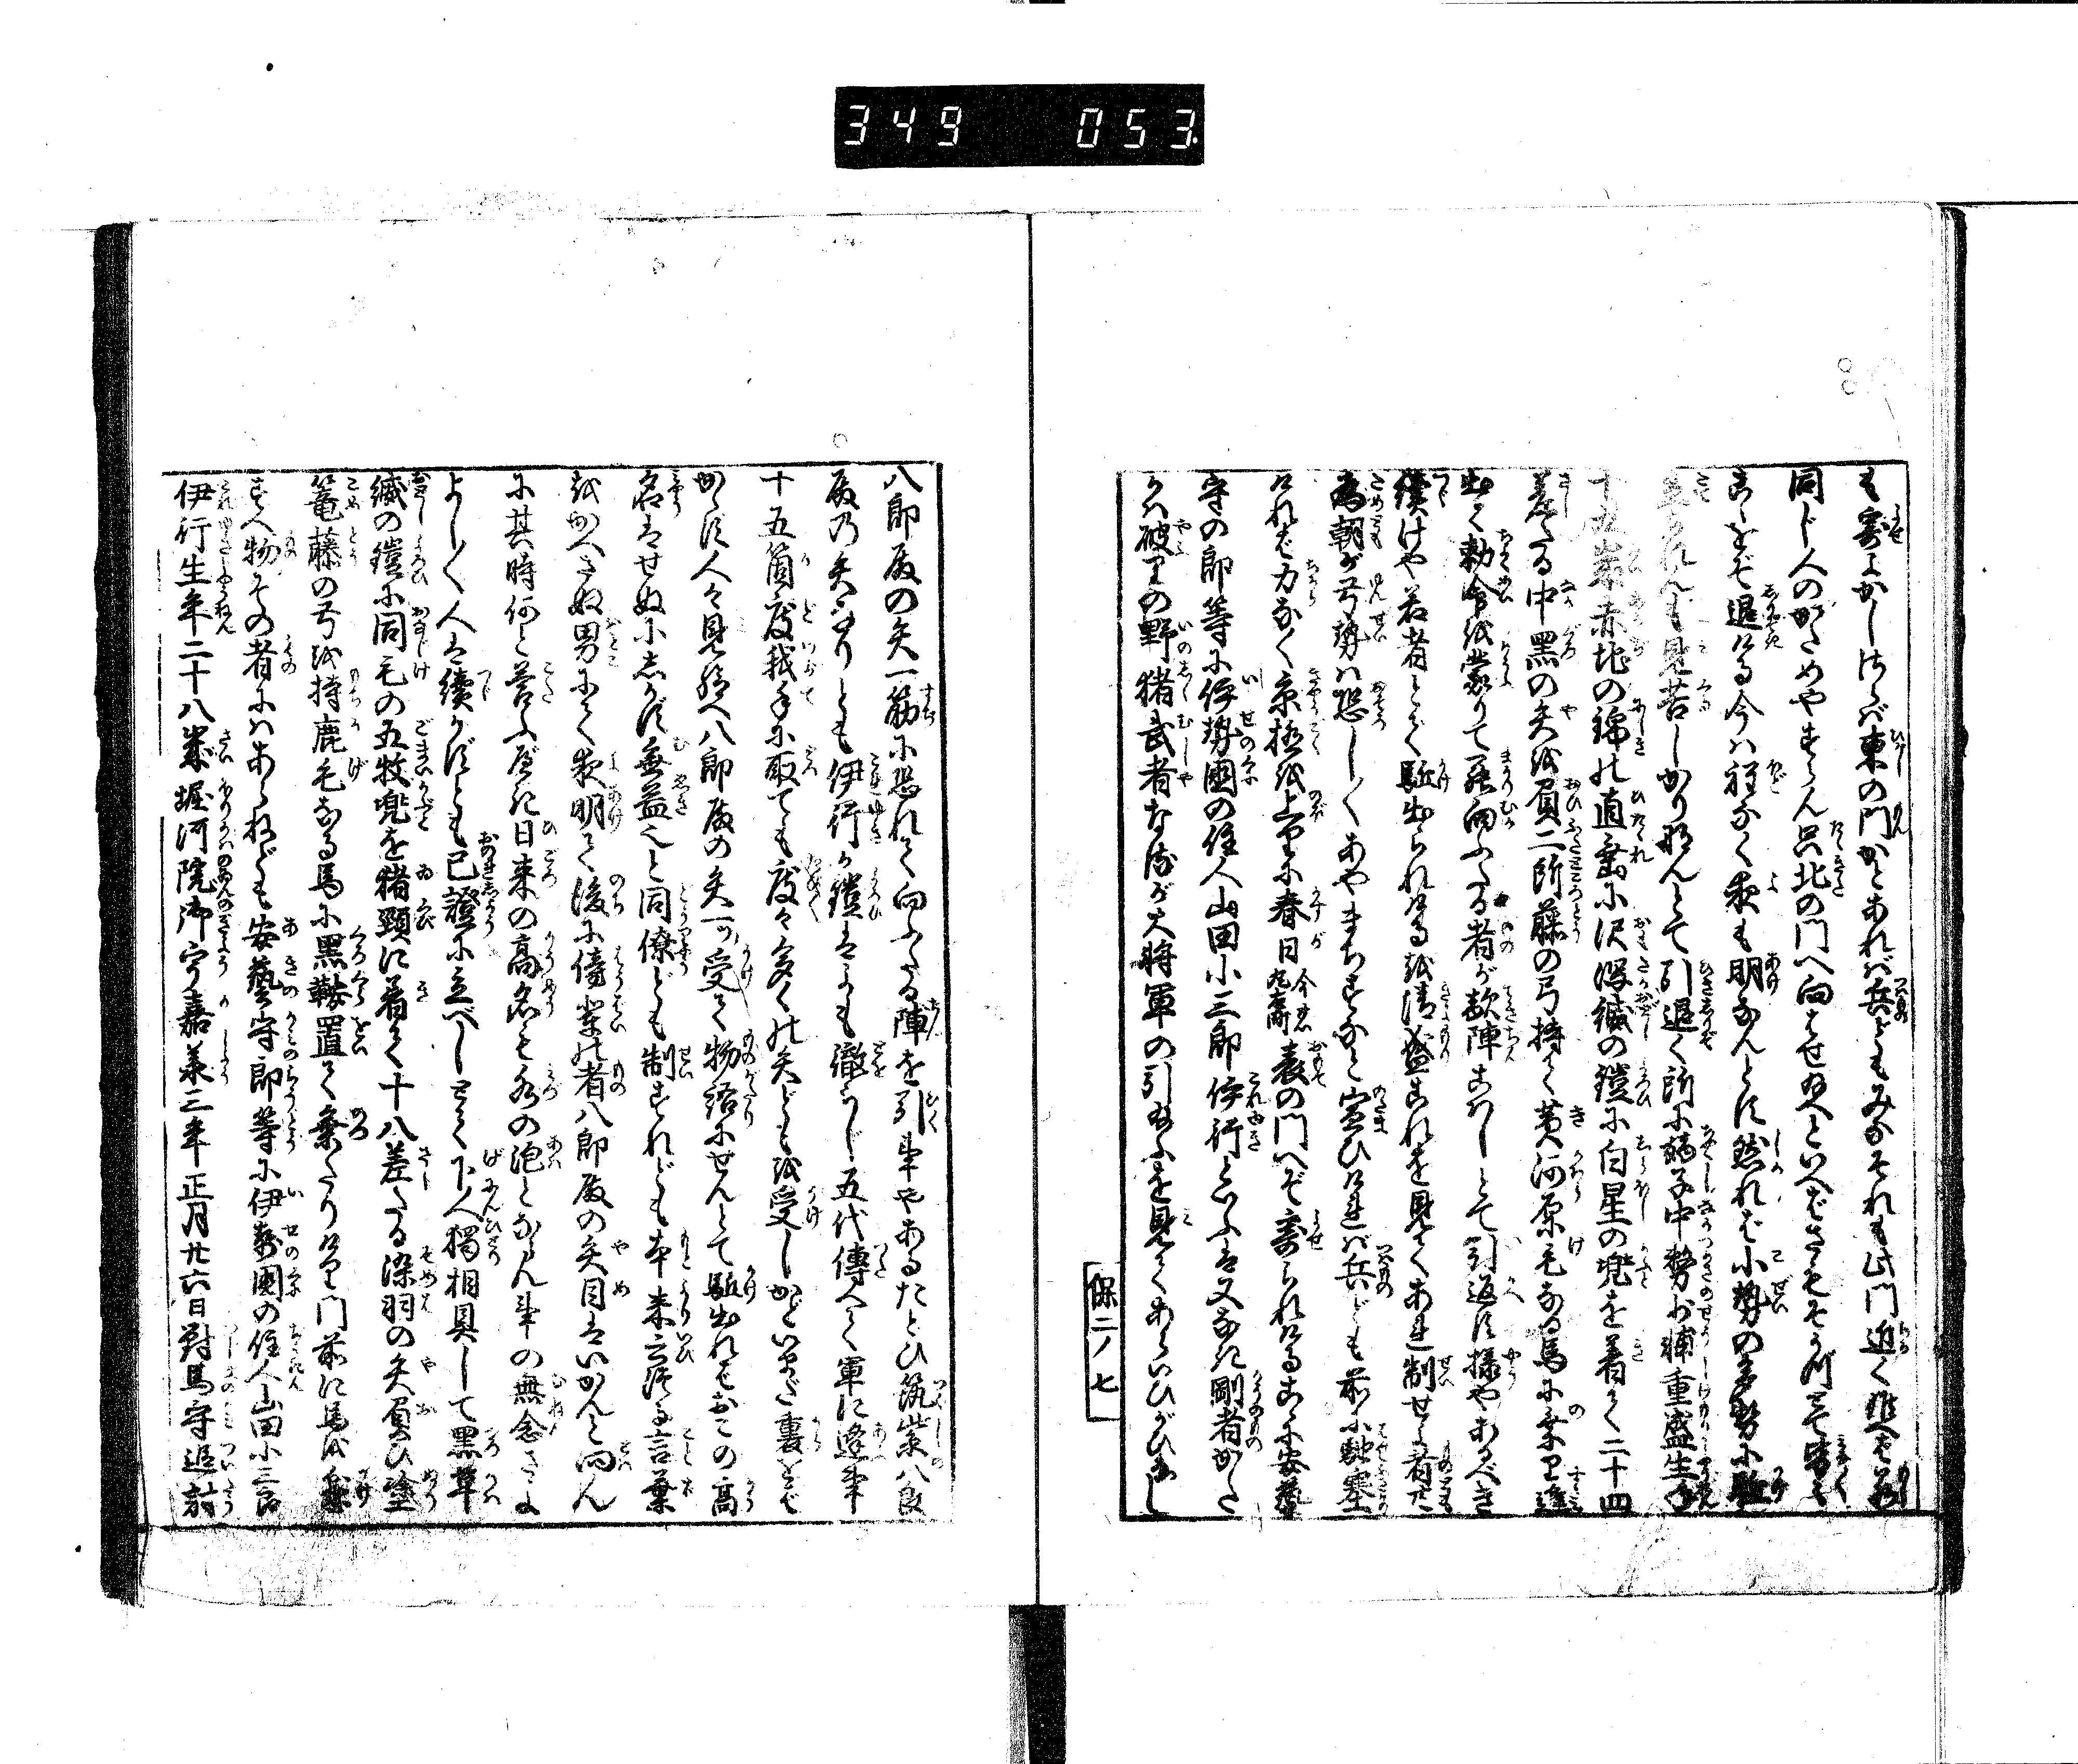 349 053
も寄よかしさらば東の門かとあれば兵どもみなそれも此門近く候へばもし
同じ人のがためや候らん只北の門へ向はせ給へといへばさもそう川にて皆々
らをぞ退ける今は程なく夜も明なんとす然れば小勢の多勢に駈
られんも見苦しかりなんとて引退く所に嫡子中務少輔重盛生年
十九歳赤地の錦の直垂に沢瀉縅の鎧に白星の兜を着て二十四
差たる中黒の矢を負二所藤の弓持て黄河原毛なる馬に乗り進
出て勅命を蒙りて罷向ふたる者が敵陣こはしとて引返す様やあるべき
続けや若者とぞく駈出られけるを清盛これを見てあれ制せよ者ども
為朝が弓勢は恐し〱あやまちすなと宣ひければ兵ども前に馳塞
ければ力なく京極を上りに春日表の門へぞ寄られけるこゝに安藝
守の郎等に伊勢国の住人山田小三郎伊行といふは又なき剛者かた
かは破りの野猪武者なるが大将軍の引給ふを見てあらいひがひなし
保二ノ七
八郎殿の矢一筋に恐れて向ふたる陣を引事やあるたとひ筑紫八郎
殿の矢なりとも伊行が鎧はよも徹らじ五代傳へて軍に逢事
十五箇度我手に取ても度々多くの矢どもを受しかどいまだ裏をぞ
かゝず人々見給へ八郎殿の矢一ツ受て物語にせんとて駈出ればおこの高
名はせぬにしかず無益也と同僚ども制すれども本来云つる言葉
をかへさぬ男にて夜明て後に傍輩の者八郎殿の矢目はいかにと問ん
に其時何と答ふべき日来の高名も水の泡となりなん事の無念さよ
よし〱人は続かずとも己證に立べしとて下人独相具して黒革
縅の鎧に同毛の五枚兜を猪頸に着て十八差たる染羽の矢負ひ塗
篭藤の弓を持鹿毛なる馬に黒鞍置て乗たりけり門前に馬を乗
すへ物その者にはあらねども安藝守郎等に伊勢国の住人山田小三郎
伊行生年二十八歳堀河院御宇嘉承三年正月廿六日対馬守追討